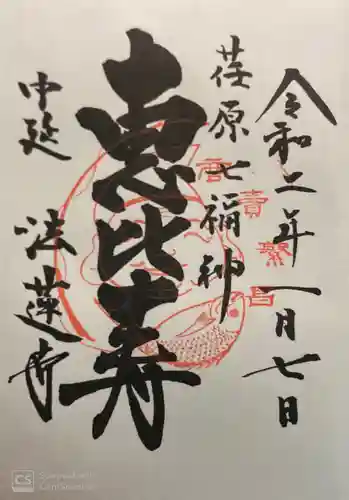 令和二年一月七日
荏原七福神
恵比寿
中延 法蓮寺
商売繁昌
CS
CamScanner